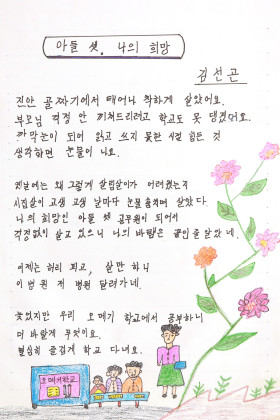 아들 셋, 나의 희망
김선곤
진안 골짜기에서 태어나 착하게 살았어요.
부모님 걱정 안 끼쳐드리려고 학교도 못 댕겼어요.
까막눈이 되어 읽고 쓰지 못한 시절 힘든 것
생각하면 눈물이 나요.
옛날에는 왜 그렇게 살림살이가 어려웠는지
시집살이 고생 고생 날마다 눈물 흘리며 살았다.
나의 희망인 아들 셋 공무원이 되어서
걱정없이 살고 있으니 나의 바램은
이제는 허리 피고, 살만 하니
이 병원 저 병원 달려가네.
늦었지만 우리 오메기 학교에서 공부하니
더 바랄게 무엇이요.
열심히 즐겁게 학교 다녀요.
오메기학교